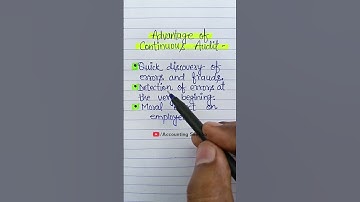 Advantage of
Continuous Audit -
Quick discovery of
errors and frauds.
Detection of errors at
the very begining.
Moral on
employe
/Accounting